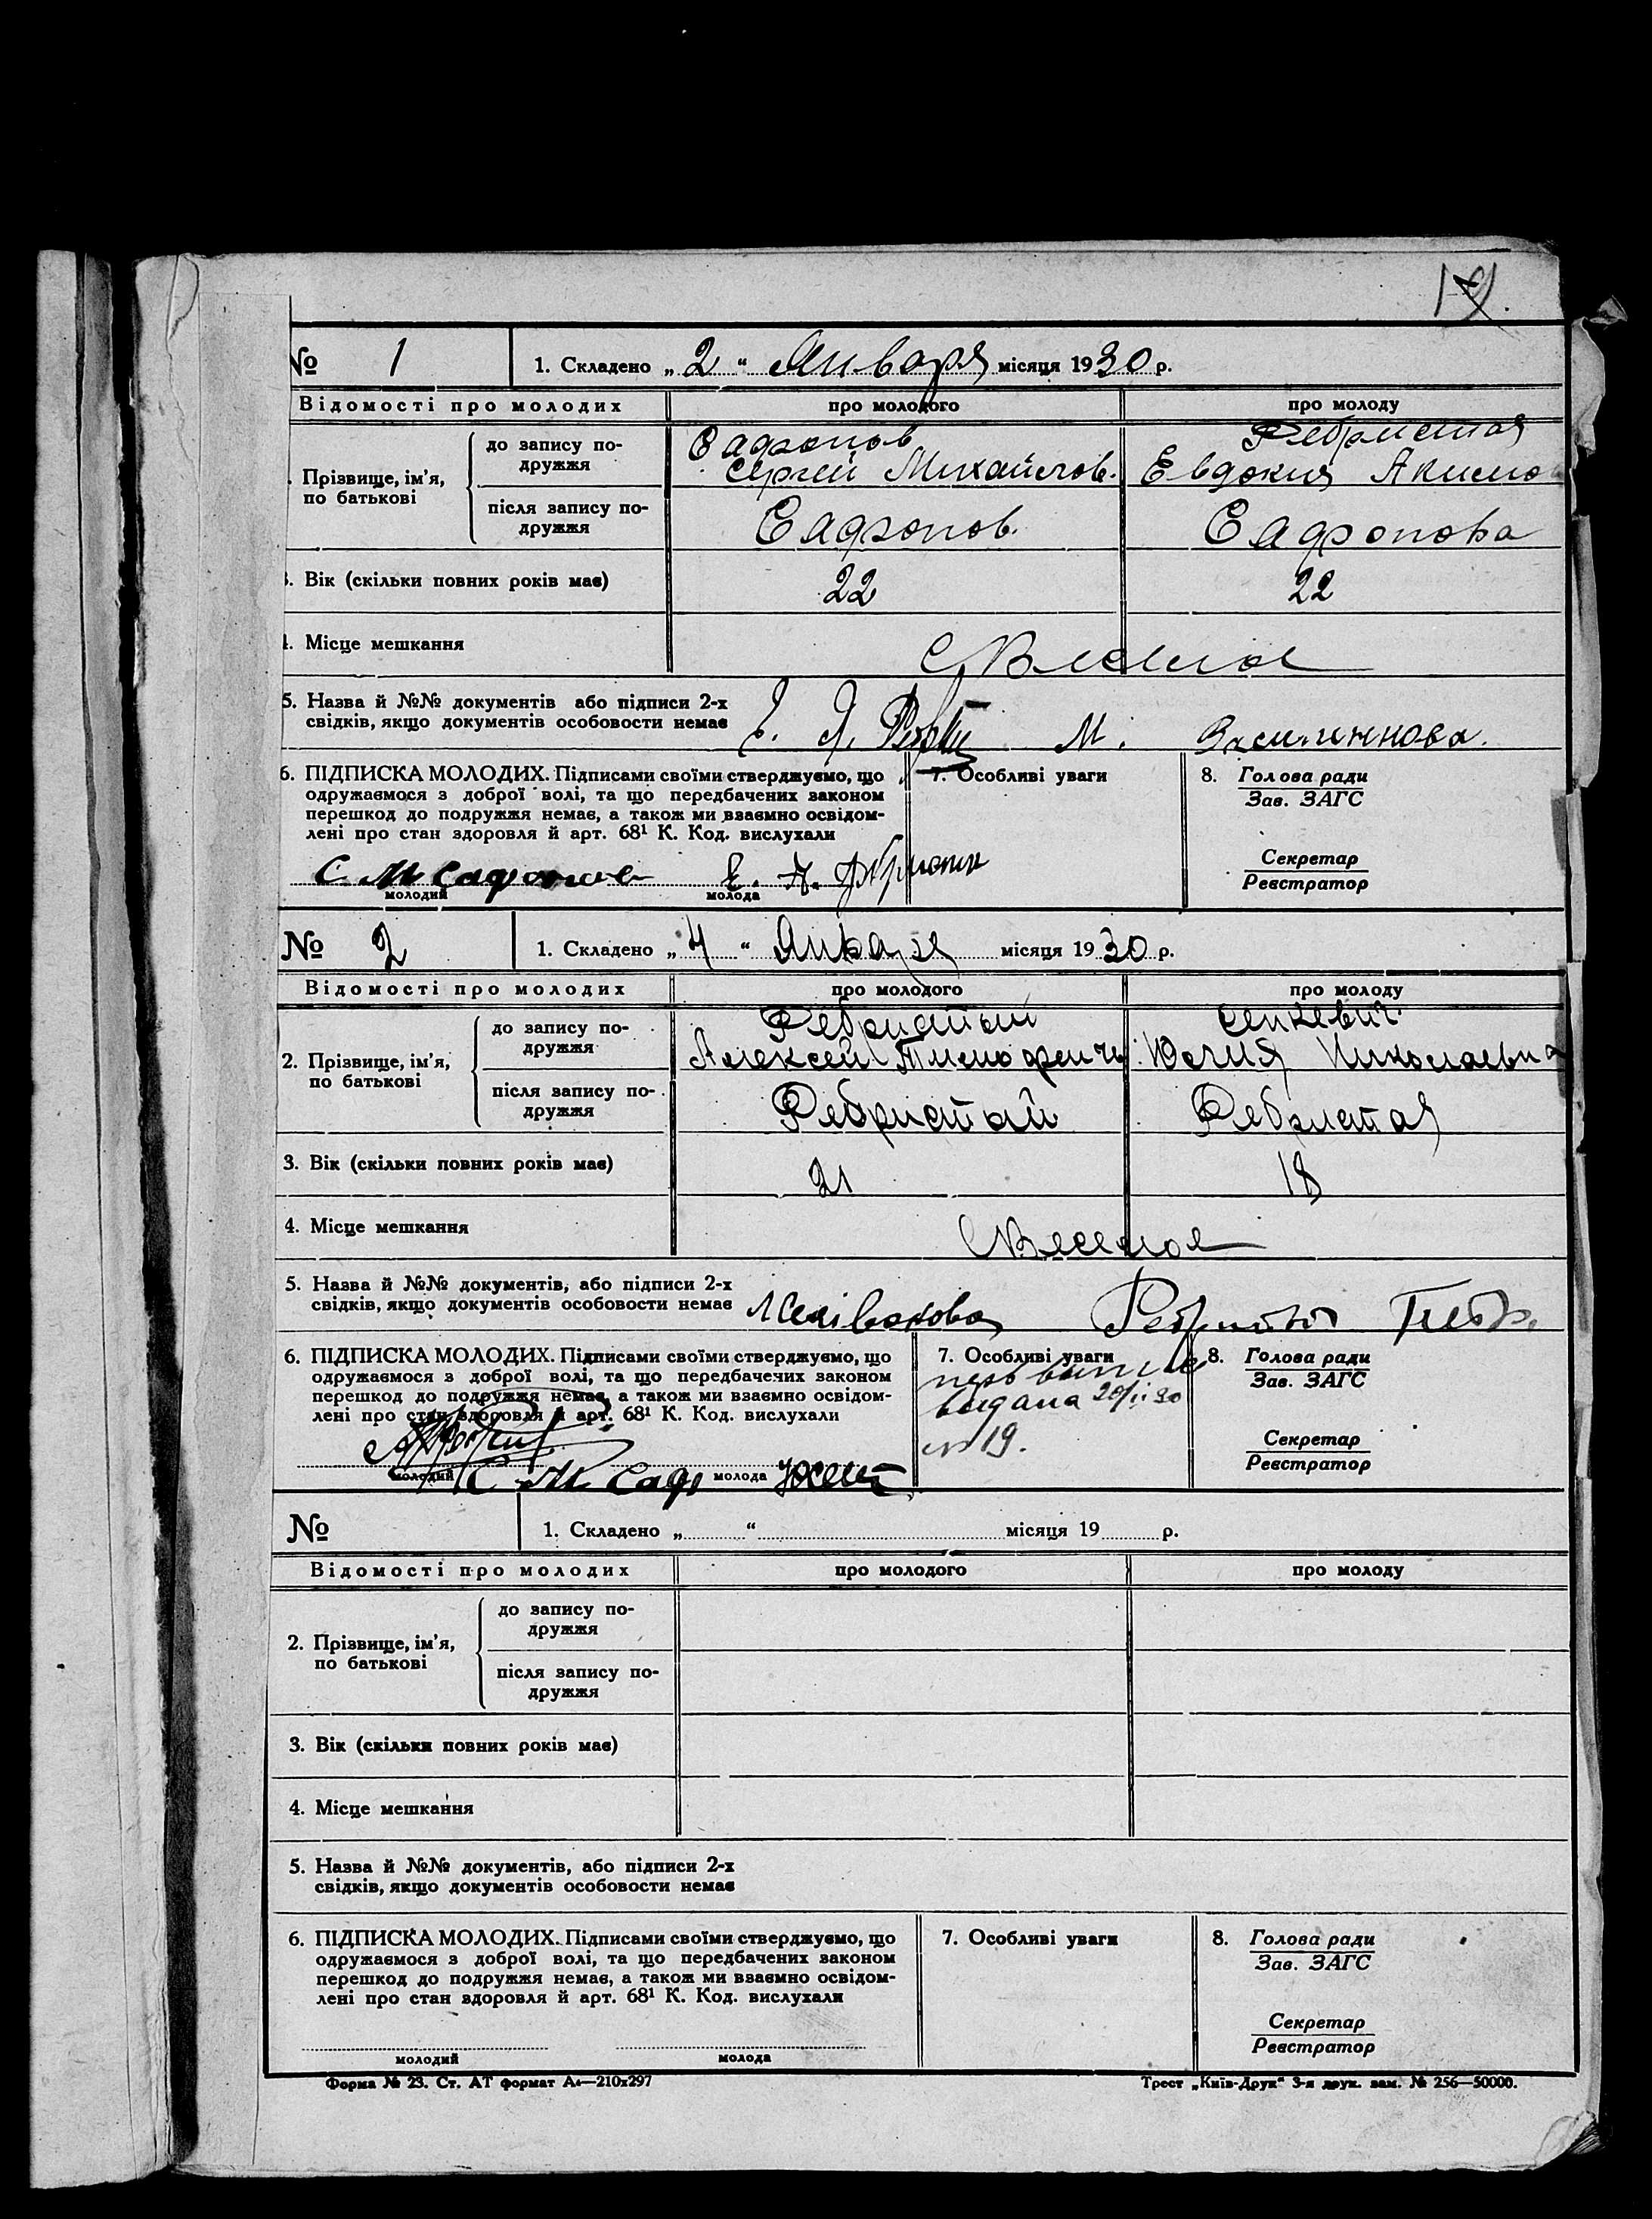 № 1 1. Складено „2“ Января місяця 1930 р.
Відомості про молодих про молодого про молоду
Прізвище, ім'я, по батькові
до запису подружжя
Сафонов Ребристая
Сергей Михайлов. Евдокия Акимо
після запису подружжя
Сафонов. Сафонова
3. Вік (скільки повних років має) 22 22
4. Місце мешкання С Веселое
5. Назва й №№ документів або підписи 2-х
свідків, якщо документів особовости немає Е. Я. М.
6. ПІДПИСКА МОЛОДИХ. Підписами своїми стверджуємо, що
одружаємося з доброї волі, та що передбачених законом
перешкод до подружжя немає, а також ми взаємно освідом-
лені про стан здоровля й арт. 68¹ К. Код. вислухали
С М Сафонов Е. А.
молодий молода
7. Особливі уваги
8. Голова ради
Зав. ЗАГС
Секретар
Реєстратор
№ 2 1. Складено „4“ Января місяця 1930 р.
Відомості про молодих про молодого про молоду
2. Прізвище, ім'я,
по батькові
до запису по-
дружжя
Ребристый Сенкевич
Алексей Тимофеичь Юлия Николаевна
після запису по-
дружжя
Ребристый Ребристая
3. Вік (скільки повних років має) 21 18
4. Місце мешкання С Веселое
5. Назва й №№ документів, або підписи 2-х
свідків, якщо документів особовости немає Ребристый Петр
6. ПІДПИСКА МОЛОДИХ. Підписами своїми стверджуємо, що
одружаємося з доброї волі, та що передбачених законом
перешкод до подружжя немає, а також ми взаємно освідом-
лені про стан здоровля й арт. 68¹ К. Код. вислухали
молодий С М Саф молода
7. Особливі уваги
выдана 20/II 30
№ 19.
8. Голова ради
Зав. ЗАГС
Секретар
Реєстратор
№ 1. Складено „ “ місяця 19 р.
Відомості про молодих про молодого про молоду
2. Прізвище, ім'я,
по батькові
до запису по-
дружжя
після запису по-
дружжя
3. Вік (скільки повних років має)
4. Місце мешкання
5. Назва й №№ документів, або підписи 2-х
свідків, якщо документів особовости немає
6. ПІДПИСКА МОЛОДИХ. Підписами своїми стверджуємо, що
одружаємося з доброї волі, та що передбачених законом
перешкод до подружжя немає, а також ми взаємно освідом-
лені про стан здоровля й арт. 68¹ К. Код. вислухали
молодий молода
7. Особливі уваги
8. Голова ради
Зав. ЗАГС
Секретар
Реєстратор
Форма № 23. Ст. АТ формат А4—210х297 Трест „Київ-Друк“ 3-я друк. зам. № 256—50000.